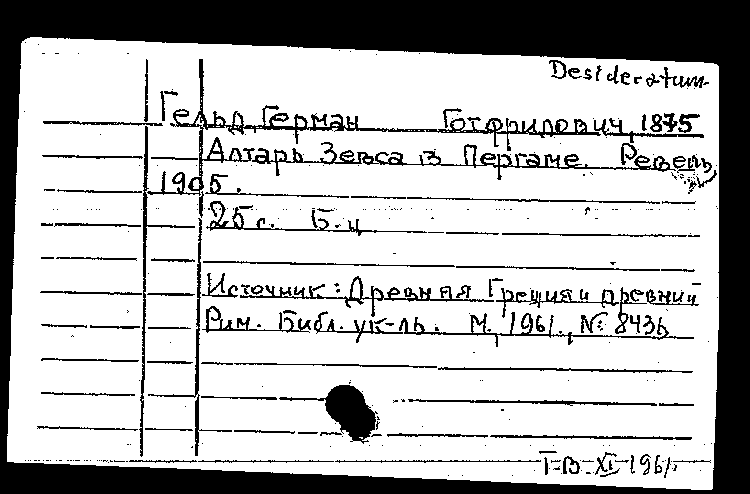 Desideratum
Гельд, Герман Готфридович, 1875
Алтарь Зевса в Пергаме. Ревель,
1905.
25 с. Б.ц
Источник: Древняя Греция и древний
Рим. Библ. ук-ль. М., 1961., №: 8436
Т-В. XI 1961.